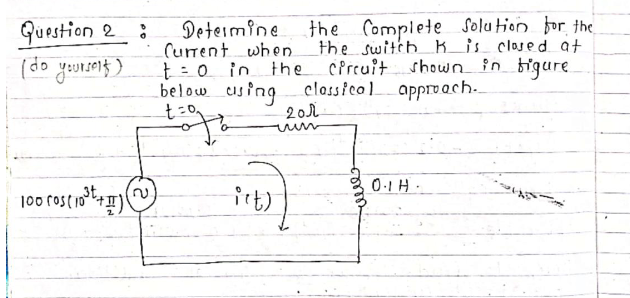 Question 2 : Determine the Complete Solution for the
(do yourself) Current when the switch K is closed at
t = 0 in the circuit shown in figure
below using classical approach.
t=0
20Ω
100 cos(10³t + π/2)
i(t)
0.1 H.